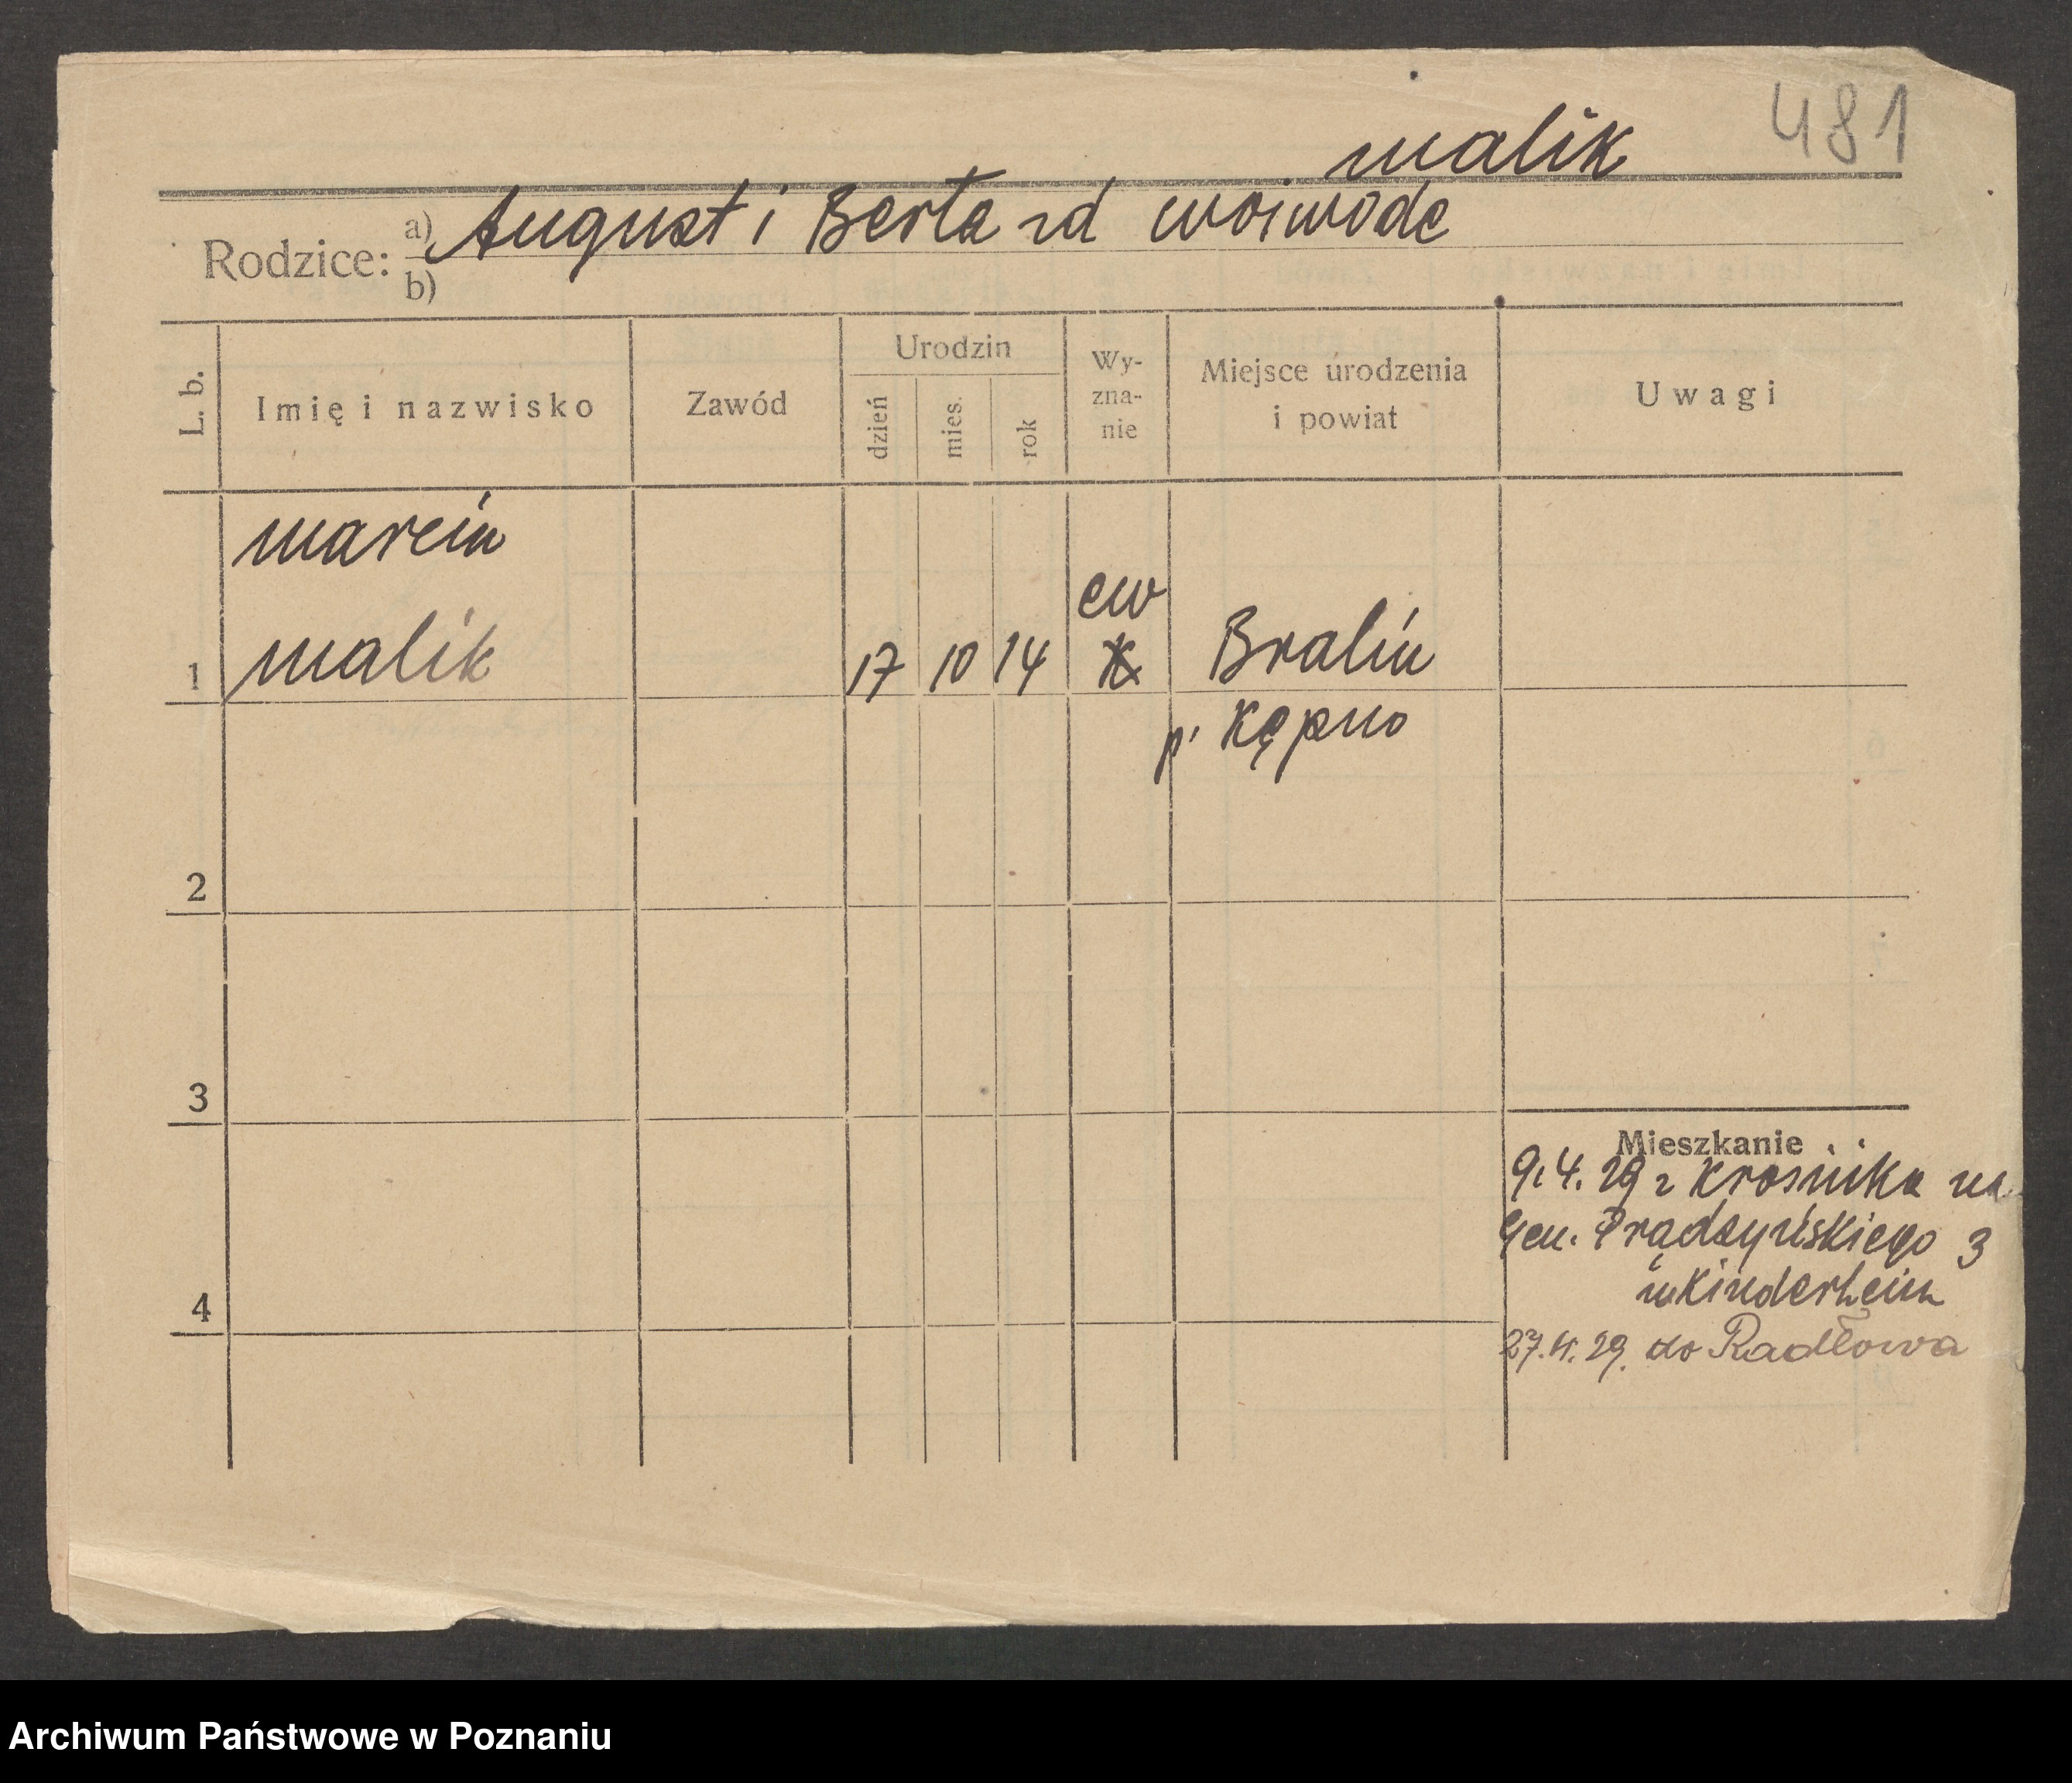 481
malik
Rodzice: a) August i Berta zd woiwode
b)
L. b. Imię i nazwisko Zawód Urodzin dzień mies. rok Wy-zna-nie Miejsce urodzenia i powiat Uwagi
marcin
ew
1 malik 17 10 14 k Bralin
p. Kępno
2
3
Mieszkanie
9.4.29 z Krosnika na
Gen. Prądzyńskiego 3
w Kinderheim
4
27.4.29. do Radłowa
Archiwum Państwowe w Poznaniu